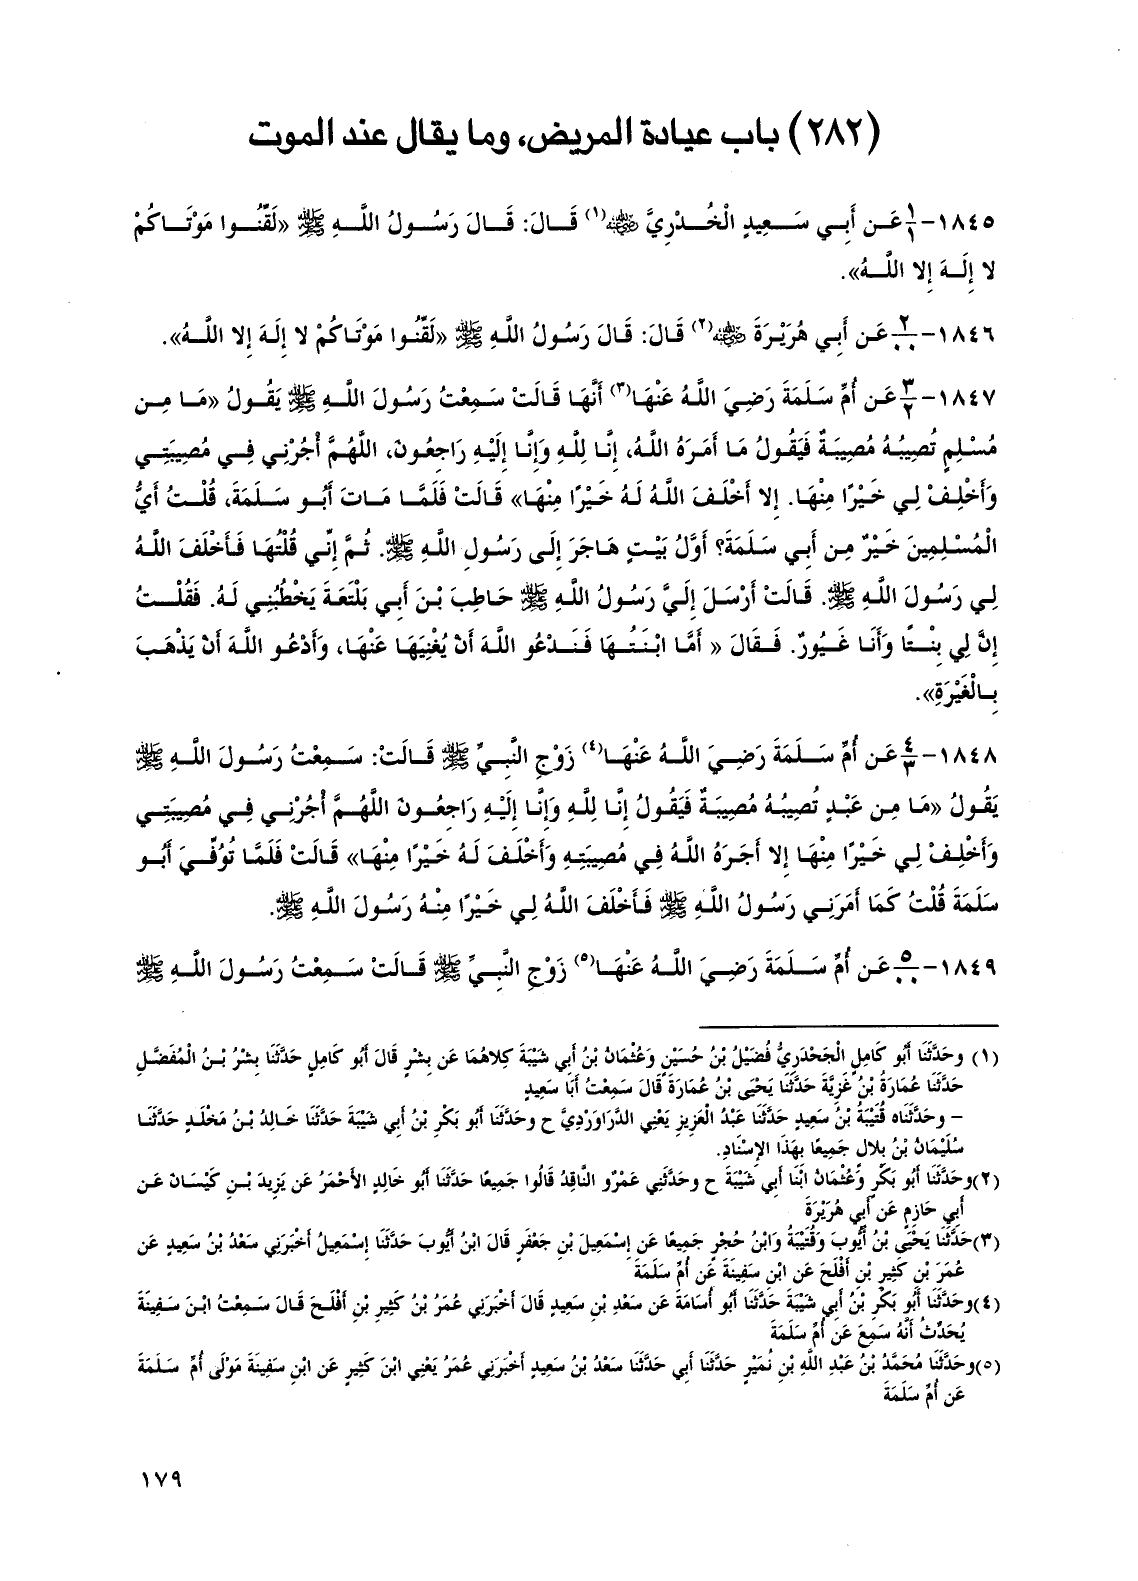 (٢٨٢) باب عيادة المريض، وما يقال عند الموت
١٨٤٥- ١/١ عَـن أَبـِي سَـعِيدٍ الْخُـدْرِيَّ ﵁(١) قَـالَ: قَـالَ رَسُـولُ اللَّـهِ ﷺ «لَقِّنُـوا مَوْتَـاكُمْ
لا إِلَـهَ إِلا اللَّـهُ».
١٨٤٦- ٢/٠٠ عَـن أَبِي هُرَيْرَةَ ﵁(٢) قَالَ: قَالَ رَسُولُ اللَّهِ ﷺ «لَقِّنُوا مَوْتَاكُمْ لا إِلَهَ إِلا اللَّـهُ».
١٨٤٧- ٣/٢ عَـن أُمِّ سَـلَمَةَ رَضِيَ اللَّهُ عَنْهَا(٣) أَنَّهَا قَالَتْ سَـمِعْتُ رَسُولَ اللَّـهِ ﷺ يَقُـولُ «مَـا مِـن
مُسْلِمٍ تُصِيبُهُ مُصِيبَةٌ فَيَقُولُ مَا أَمَرَهُ اللَّـهُ، إِنَّا لِلَّهِ وَإِنَّا إِلَيْهِ رَاجِعُونَ، اللَّهُمَّ أْجُرْنِي فِـي مُصِيبَتِـي
وَأَخْلِفْ لِي خَيْرًا مِنْهَـا. إِلا أَخْلَفَ اللَّهُ لَهُ خَيْرًا مِنْهَا» قَالَتْ فَلَمَّا مَاتَ أَبُو سَـلَمَةَ، قُلْتُ أَيُّ
الْمُسْلِمِينَ خَيْرٌ مِن أَبِي سَلَمَةَ؟ أَوَّلُ بَيْتٍ هَاجَرَ إِلَى رَسُولِ اللَّهِ ﷺ. ثُمَّ إِنِّي قُلْتُهَا فَأَخْلَفَ اللَّهُ
لِي رَسُولَ اللَّهِ ﷺ. قَالَتْ أَرْسَلَ إِلَيَّ رَسُولُ اللَّهِ ﷺ حَاطِبَ بْنَ أَبِي بَلْتَعَةَ يَخْطُبُنِي لَهُ. فَقُلْـتُ
إِنَّ لِي بِنْـتًا وَأَنَـا غَـيُورٌ. فَـقَالَ « أَمَّا ابْنَـتُـهَا فَنَـدْعُو اللَّهَ أَنْ يُغْنِيَهَا عَنْهَا، وَأَدْعُو اللَّهَ أَنْ يَذْهَبَ
بِـالْغَيْرَةِ».
١٨٤٨- ٤/٣ عَـن أُمِّ سَـلَمَةَ رَضِيَ اللَّـهُ عَنْهَـا(٤) زَوْجِ النَّبِيِّ ﷺ قَـالَتْ: سَـمِعْتُ رَسُـولَ اللَّـهِ ﷺ
يَقُولُ «مَـا مِن عَبْدٍ تُصِيبُهُ مُصِيبَةٌ فَيَقُولُ إِنَّا لِلَّهِ وَإِنَّا إِلَيْهِ رَاجِعُونَ اللَّهُمَّ أْجُرْنِي فِـي مُصِيبَتِـي
وَأَخْلِفْ لِي خَيْرًا مِنْهَا إِلا أَجَرَهُ اللَّهُ فِي مُصِيبَتِهِ وَأَخْلَفَ لَهُ خَيْرًا مِنْهَا» قَالَتْ فَلَمَّا تُوُفِّيَ أَبُـو
سَلَمَةَ قُلْتُ كَمَا أَمَرَنِي رَسُولُ اللَّـهِ ﷺ فَـأَخْلَفَ اللَّهُ لِي خَيْرًا مِنْهُ رَسُولَ اللَّهِ ﷺ.
١٨٤٩- ٥/٠٠ عَـن أُمِّ سَـلَمَةَ رَضِيَ اللَّـهُ عَنْهَـا(٥) زَوْجِ النَّبِيِّ ﷺ قَالَتْ سَـمِعْتُ رَسُولَ اللَّـهِ ﷺ
(١) وحَدَّثَنَا أَبُو كَامِلٍ الْجَحْدَرِيُّ فُضَيْلُ بْنُ حُسَيْنٍ وَعُثْمَانُ بْنُ أَبِي شَيْبَةَ كِلاهُمَا عَن بِشْرٍ قَالَ أَبُو كَامِلٍ حَدَّثَنَا بِشْرُ بْـنُ الْمُفَضَّلِ
حَدَّثَنَا عُمَارَةُ بْنُ غَزِيَّةَ حَدَّثَنَا يَحْيَى بْنُ عُمَارَةَ قَالَ سَمِعْتُ أَبَا سَعِيدٍ
– وحَدَّثَنَاه قُتَيْبَةُ بْنُ سَعِيدٍ حَدَّثَنَا عَبْدُ الْعَزِيزِ يَعْنِي الدَّرَاوَرْدِيَّ ح وحَدَّثَنَا أَبُو بَكْرِ بْنُ أَبِي شَيْبَةَ حَدَّثَنَا خَـالِدُ بْنُ مَخْلَدٍ حَدَّثَنَـا
سُلَيْمَانُ بْنُ بِلالٍ جَمِيعًا بِهَذَا الإِسْنَادِ.
(٢)وحَدَّثَنَا أَبُو بَكْرٍ وَعُثْمَانُ ابْنَا أَبِي شَيْبَةَ ح وحَدَّثَنِي عَمْرٌو النَّاقِدُ قَالُوا جَمِيعًا حَدَّثَنَا أَبُو خَالِدٍ الأَحْمَرُ عَن يَزِيدَ بْـنِ كَيْسَـانَ عَـن
أَبِي حَازِمٍ عَن أَبِي هُرَيْرَةَ
(٣)حَدَّثَنَا يَحْيَى بْنُ أَيُّوبَ وَقُتَيْبَةُ وَابْنُ حُجْرٍ جَمِيعًا عَن إِسْمَعِيلَ بْنِ جَعْفَرٍ قَالَ ابْنُ أَيُّوبَ حَدَّثَنَا إِسْمَعِيلُ أَخْبَرَنِي سَعْدُ بْنُ سَعِيدٍ عَن
عُمَرَ بْنِ كَثِيرِ بْنِ أَفْلَحَ عَن ابْنِ سَفِينَةَ عَن أُمِّ سَلَمَةَ
(٤)وحَدَّثَنَا أَبُو بَكْرِ بْنُ أَبِي شَيْبَةَ حَدَّثَنَا أَبُو أُسَامَةَ عَن سَعْدِ بْنِ سَعِيدٍ قَالَ أَخْبَرَنِي عُمَرُ بْنُ كَثِيرِ بْنِ أَفْلَـحَ قَـالَ سَـمِعْتُ ابْـنَ سَـفِينَةَ
يُحَدِّثُ أَنَّهُ سَمِعَ عَن أُمِّ سَلَمَةَ
(٥)وحَدَّثَنَا مُحَمَّدُ بْنُ عَبْدِ اللَّهِ بْنِ نُمَيْرٍ حَدَّثَنَا أَبِي حَدَّثَنَا سَعْدُ بْنُ سَعِيدٍ أَخْبَرَنِي عُمَرُ يَعْنِي ابْنَ كَثِيرٍ عَن ابْنِ سَفِينَةَ مَوْلَى أُمِّ سَلَمَةَ
عَن أُمِّ سَلَمَةَ
١٧٩